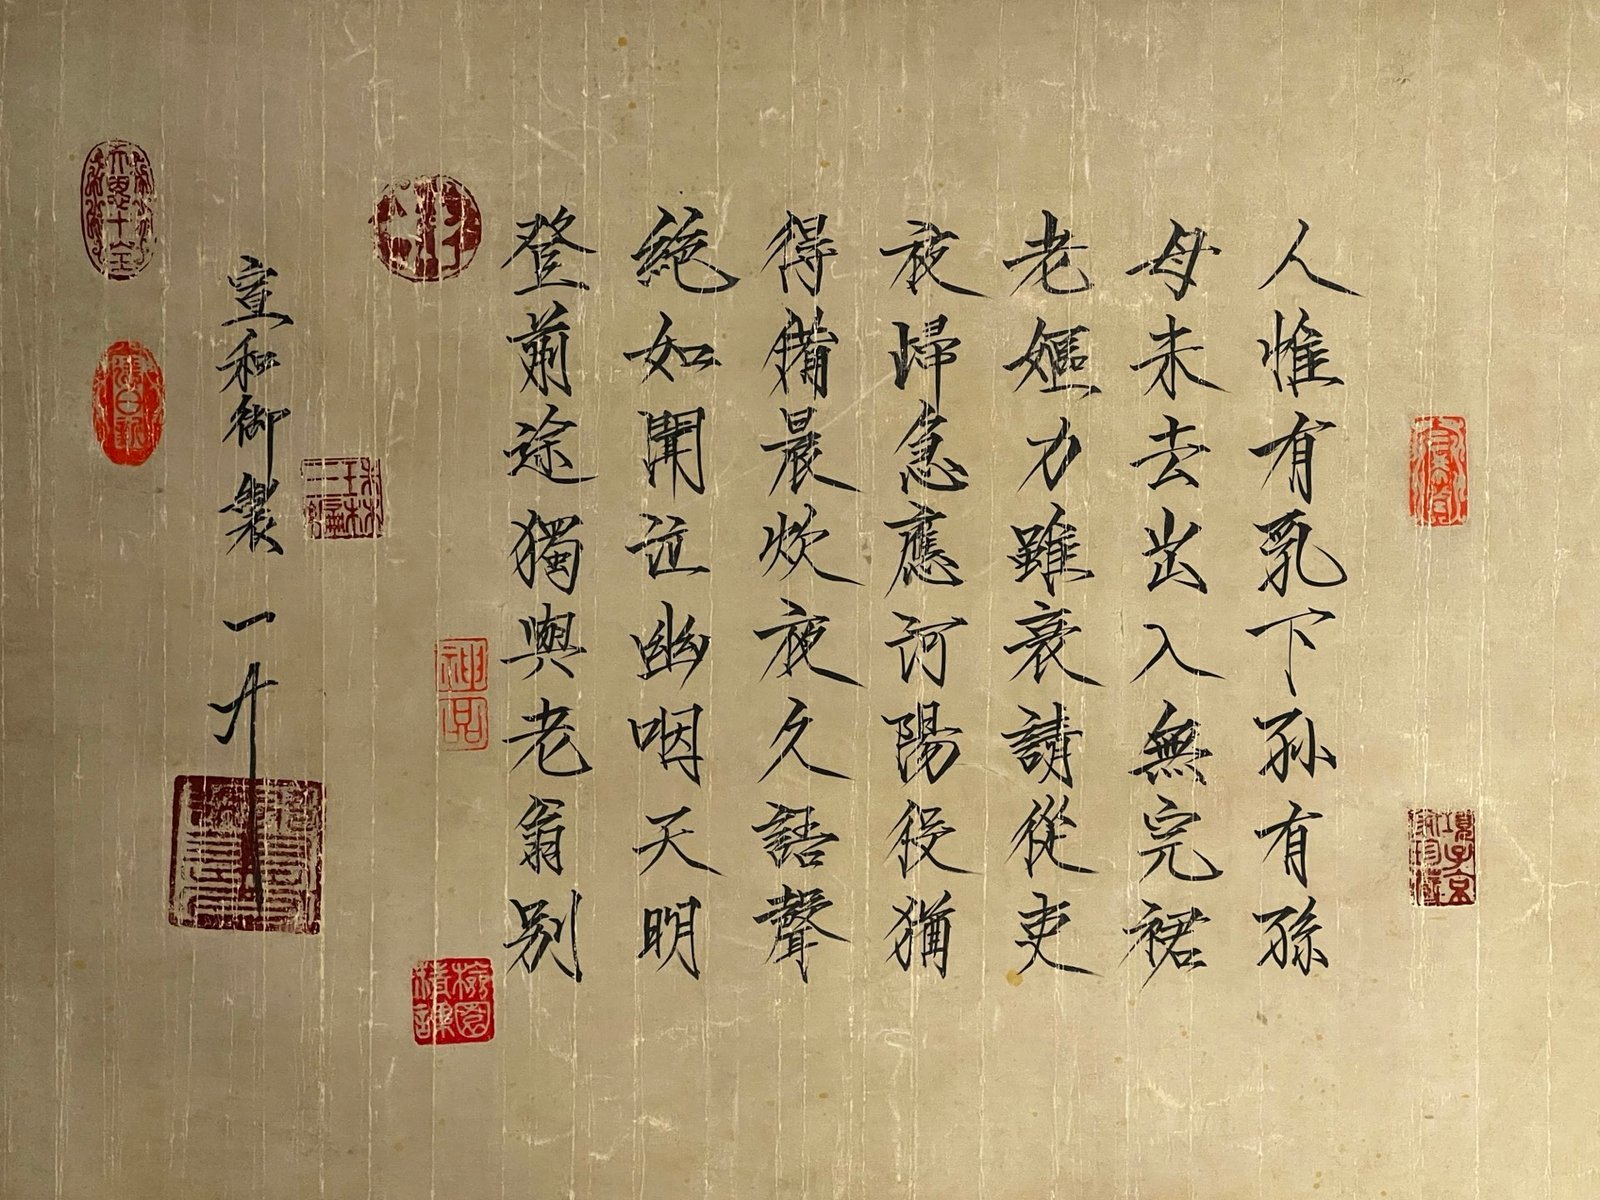 人惟有乳下孙有孫
母未去出入無完裙
老嫗力雖衰請從吏
夜歸急應河陽役猶
得備晨炊夜久語聲
絕如聞泣幽咽天明
登前途獨與老翁別
宣和御製一廾
神品
項子京